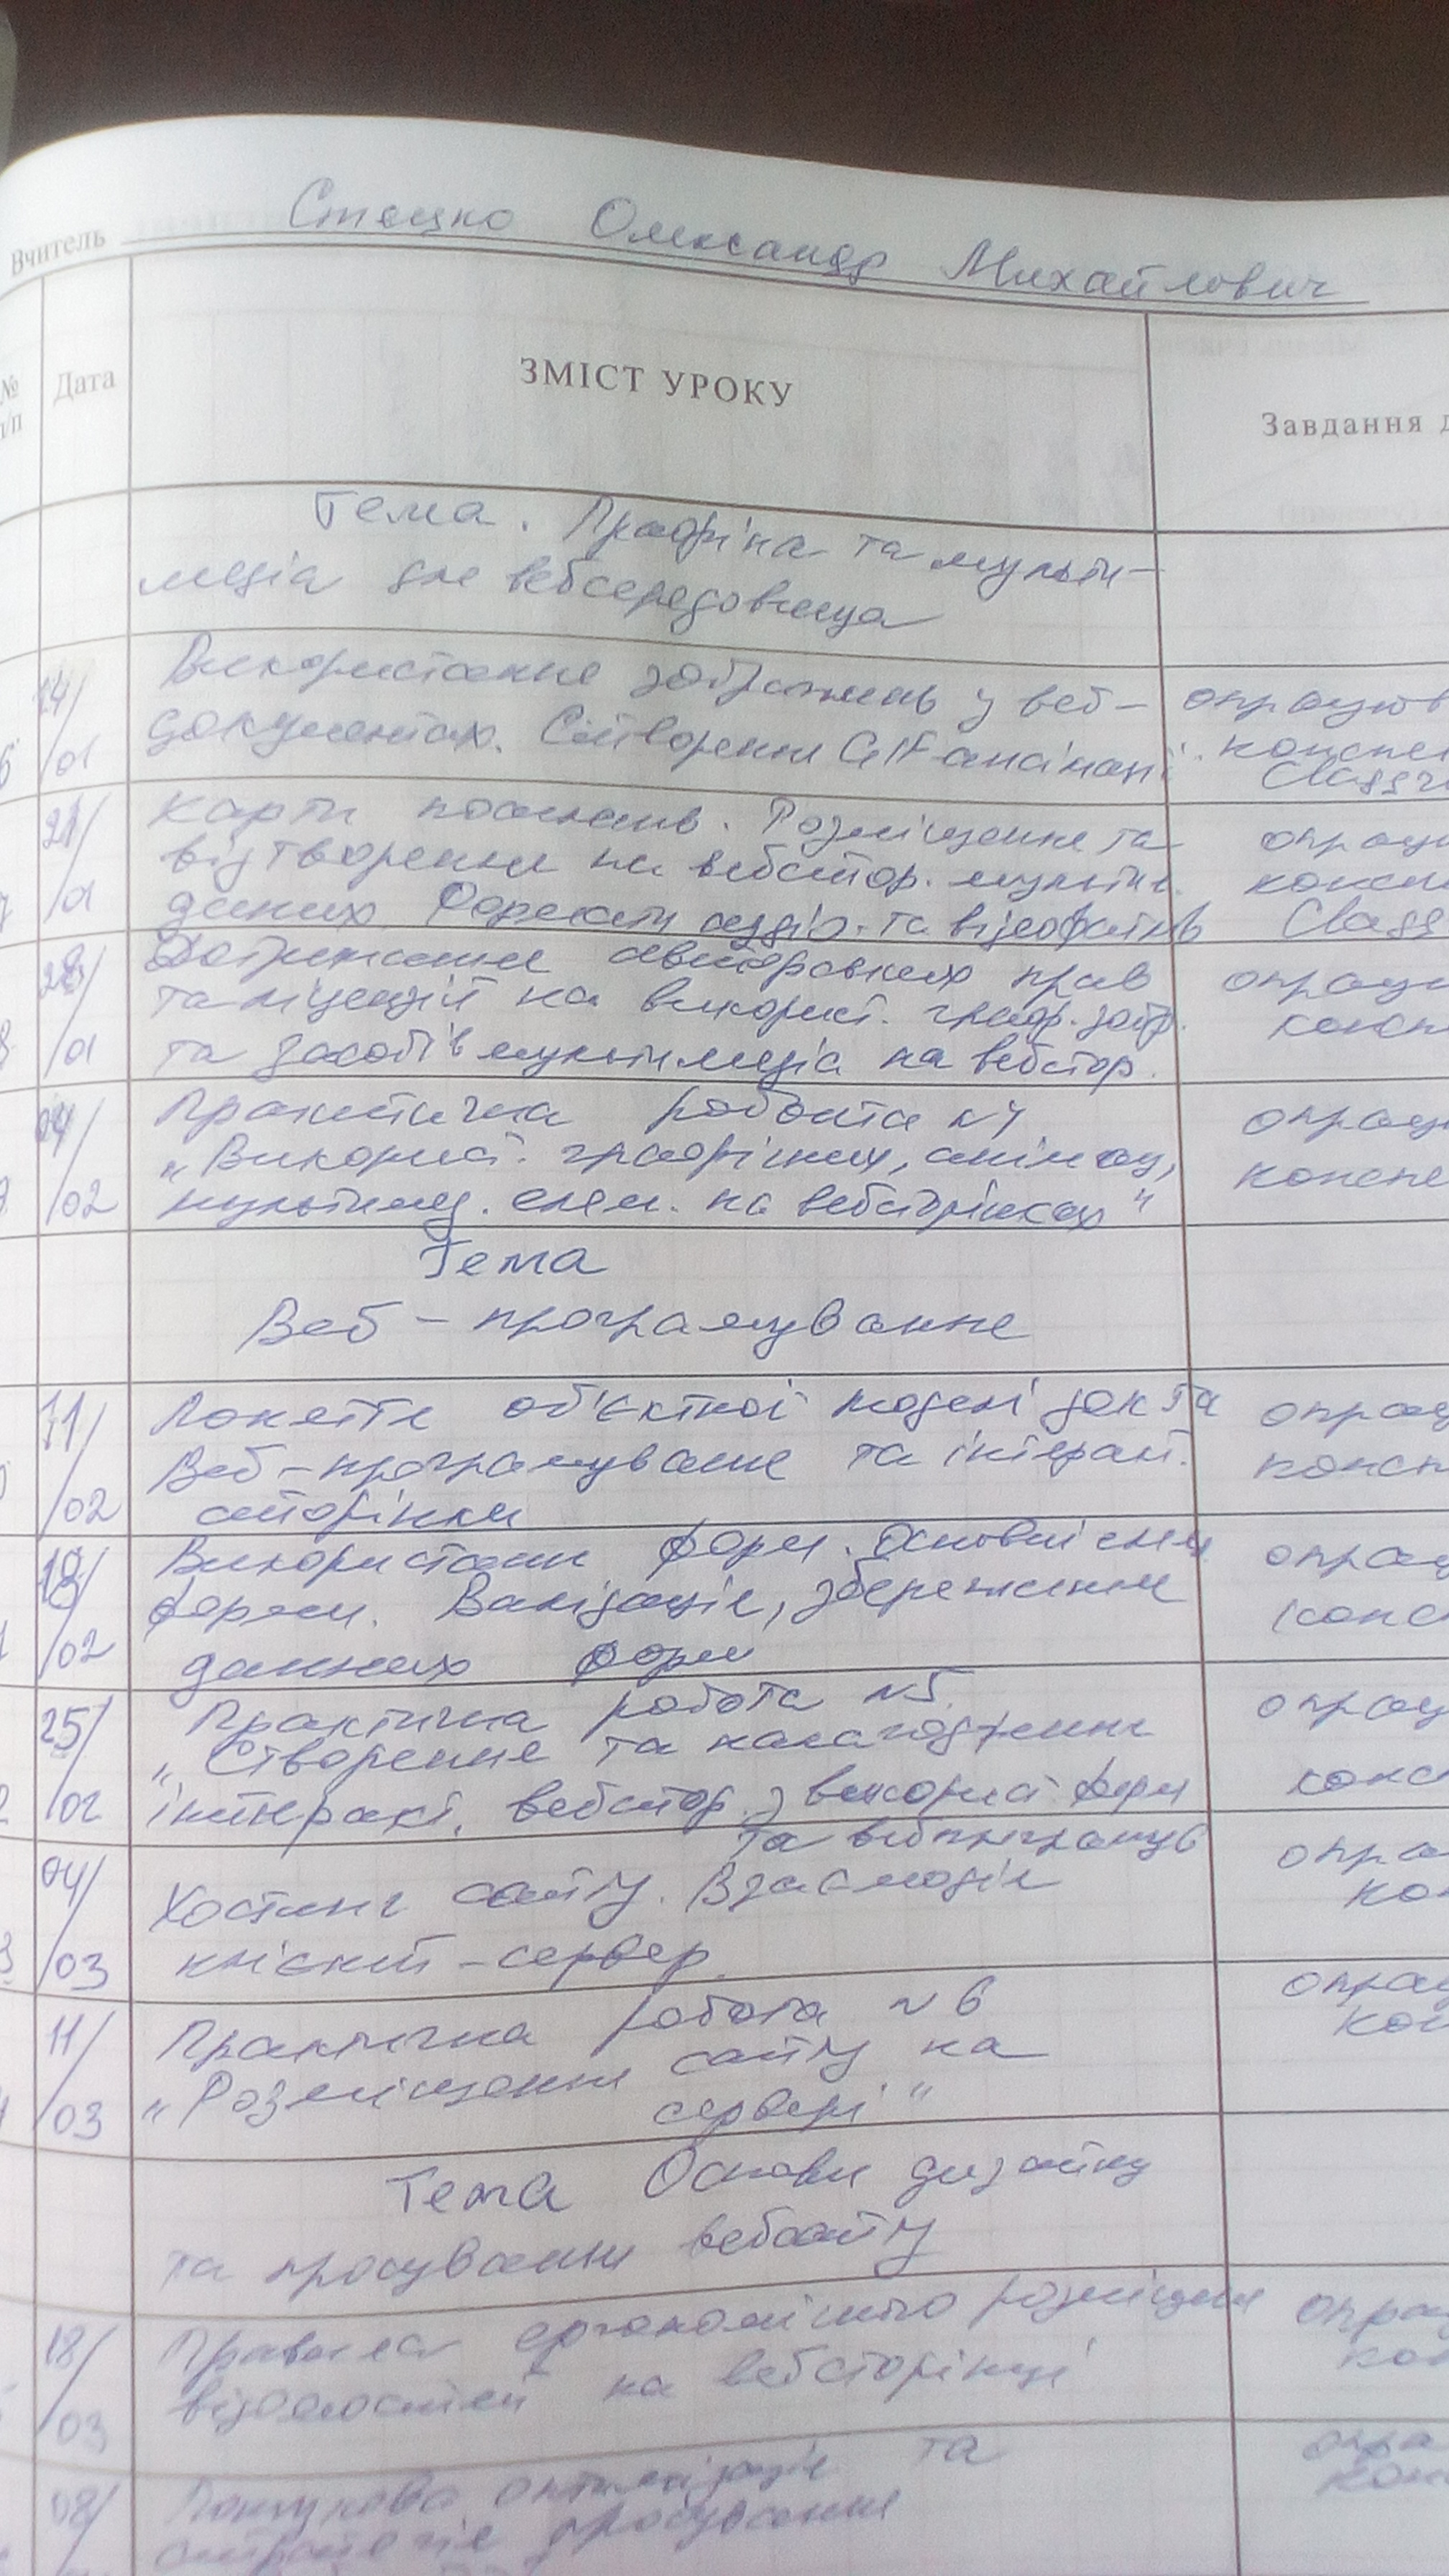 Вчитель Стецко Олександр Михайлович
№ п/п
Дата
ЗМІСТ УРОКУ
Завдання д
Тема. Графіка та мульти-
медіа для вебсередовища
14/01
Використання зображень у веб-
документах. Створення GIF анімації
опрацюв
конспек
Classr
21/01
Карти посилань. Розміщення та
відтворення на вебстор. мультим.
даних Формати аудіо. та відеофайлів
опрац
консп
Class
28/01
Дотримання авторських прав
та ліцензій на використ. граф. зобр.
та засобів мультимедіа на вебстор.
опрац
консп
04/02
Практична робота №4
„Використ. графічних, анімац,
мультимед. елем. на вебсторінках"
опрац
конспе
Тема
Веб-програмування
11/02
Поняття об'єктної моделі док та
Веб-програмування та інтеракт.
сторінки
опрац
консп
18/02
Використання форм. Основні елем
форми. Валідація, збереження
данних форм
опрац
конс
25/02
Практична робота №5.
„Створення та налагодження
інтеракт. вебстор. з використ форм
та вебпрограмув
опрац
конс
04/03
Хостинг сайту. Взаємодія
клієнт-сервер.
опра
ко
11/03
Практична робота №6
„Розміщення сайту на
сервері"
опрац
кон
Тема Основи дизайну
та просування вебсайту
18/03
Правила ергономічного розміщення
відомостей на вебсторінці
опра
кон
08/
Пошукова оптимізація та
стратегія просування
опра
кон